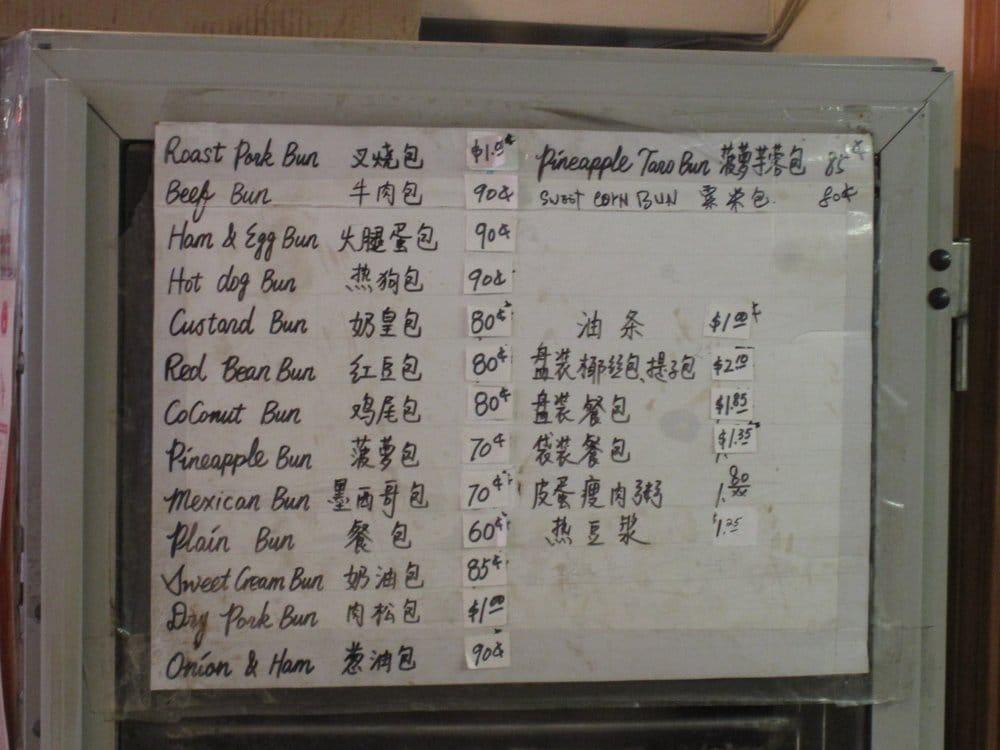 Roast Pork Bun 叉烧包 $1.00
Beef Bun 牛肉包 90¢
Ham & Egg Bun 火腿蛋包 90¢
Hot dog Bun 热狗包 90¢
Custard Bun 奶皇包 80¢
Red Bean Bun 红豆包 80¢
CoConut Bun 鸡尾包 80¢
Pineapple Bun 菠萝包 70¢
Mexican Bun 墨西哥包 70¢
Plain Bun 餐包 60¢
Sweet Cream Bun 奶油包 85¢
Dry Pork Bun 肉松包 $1.00
Onion & Ham 葱油包 90¢
Pineapple Taro Bun 菠萝芋蓉包 85¢
Sweet Corn Bun 粟米包 80¢
油条 $1.00
盘装椰丝包、提子包
盘装餐包 $1.85
袋装餐包 $1.35
皮蛋瘦肉粥 1.80
热豆浆 $1.25